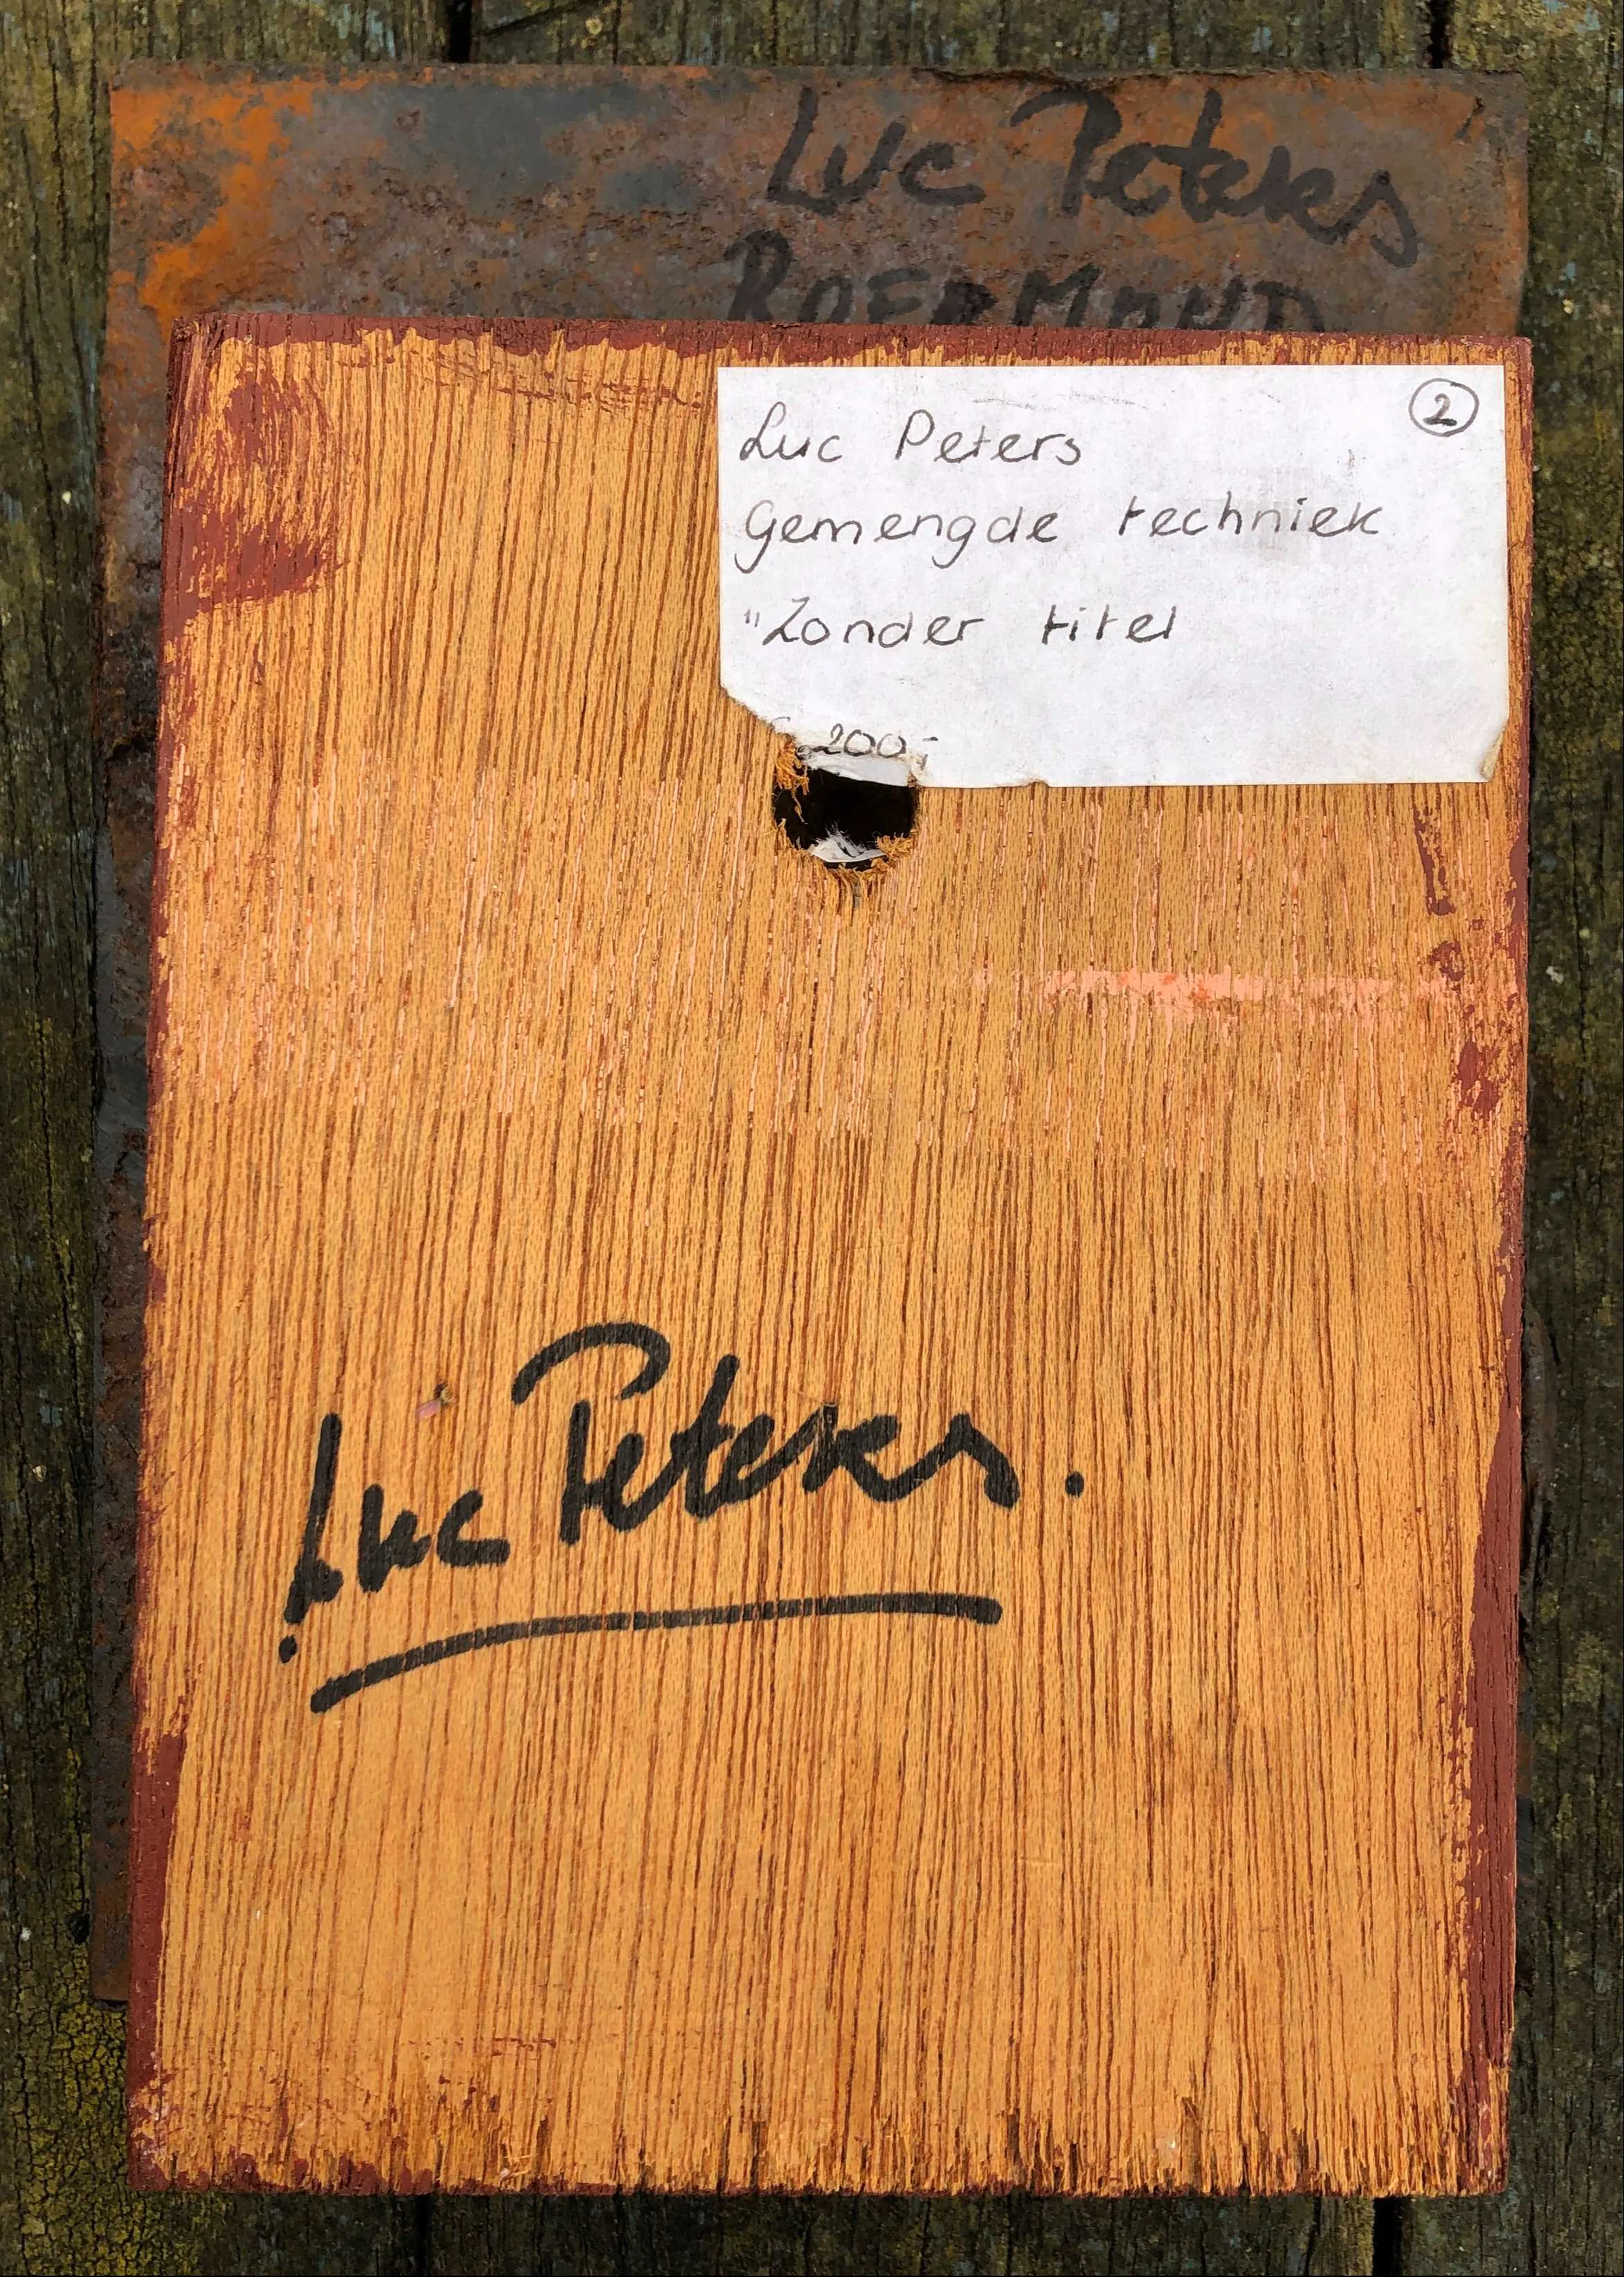 Luc Peters
ROERMOND
2
Luc Peters
Gemengde techniek
"Zonder titel
200,-
Luc Peters.